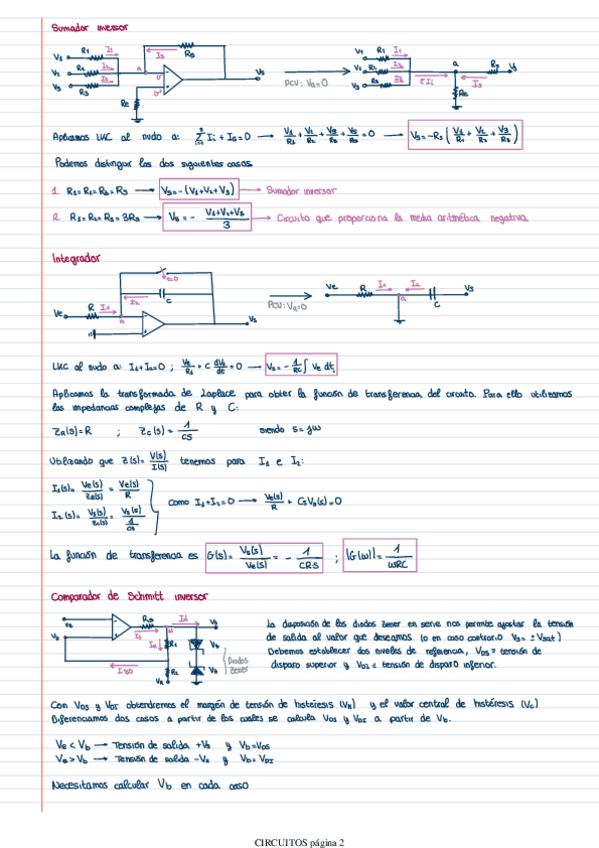 Sumador inversor
PCV: Va=0
Aplicamos LKC al nudo a: Σ Ii + Is=0 → V1/R1 + V2/R2 + V3/R3 + Vs/Rs = 0 → Vs=-Rs(V1/R1 + V2/R2 + V3/R3)
Podemos distinguir los dos siguientes casos
1. R1=R2=R3=Rs → Vs=-(V1+V2+V3) → Sumador inversor
2. R1=R2=R3=3Rs → Vs=-(V1+V2+V3)/3 → Circuito que proporciona la media aritmética negativa.
Integrador
t=0
PCV: Va=0
LKC al nudo a: I1+I2=0 ; Ve/R + C dVs/dt = 0 → Vs=-1/RC ∫ Ve dt
Aplicamos la transformada de Laplace para obter la función de transferencia del circuito. Para ello utilizamos
las impedancias complejas de R y C:
ZR(s)=R ; ZC(s)=1/CS siendo s=jω
Utilizando que Z(s)=V(s)/I(s) tenemos para I1 e I2:
I1(s)=Ve(s)/ZR(s)=Ve(s)/R
I2(s)=Vs(s)/Zc(s)=Vs(s)/(1/CS)
Como I1+I2=0 → Ve(s)/R + CsVs(s)=0
La función de transferencia es G(s)=Vs(s)/Ve(s)=-1/CRS ; |G(ω)|=1/ωRC
Comparador de Schmitt inversor
Diodos
Zener
La disposición de los diodos zener en serie nos permite ajustar la tensión
de salida al valor que deseamos (o en caso contrario Vs=±Vsat)
Debemos establecer dos niveles de referencia, VDS = tensión de
disparo superior y VDI = tensión de disparo inferior.
Con VDS y VDI obtendremos el margen de tensión de histéresis (VH) y el valor central de histéresis (Vc)
Diferenciamos dos casos a partir de los cuales se calcula VDS y VDI a partir de Vb.
Ve < Vb → Tensión de salida +Vs y Vb=VDS
Ve > Vb → Tensión de salida -Vs y Vb=VDI
Necesitamos calcular Vb en cada caso
CIRCUITOS página 2